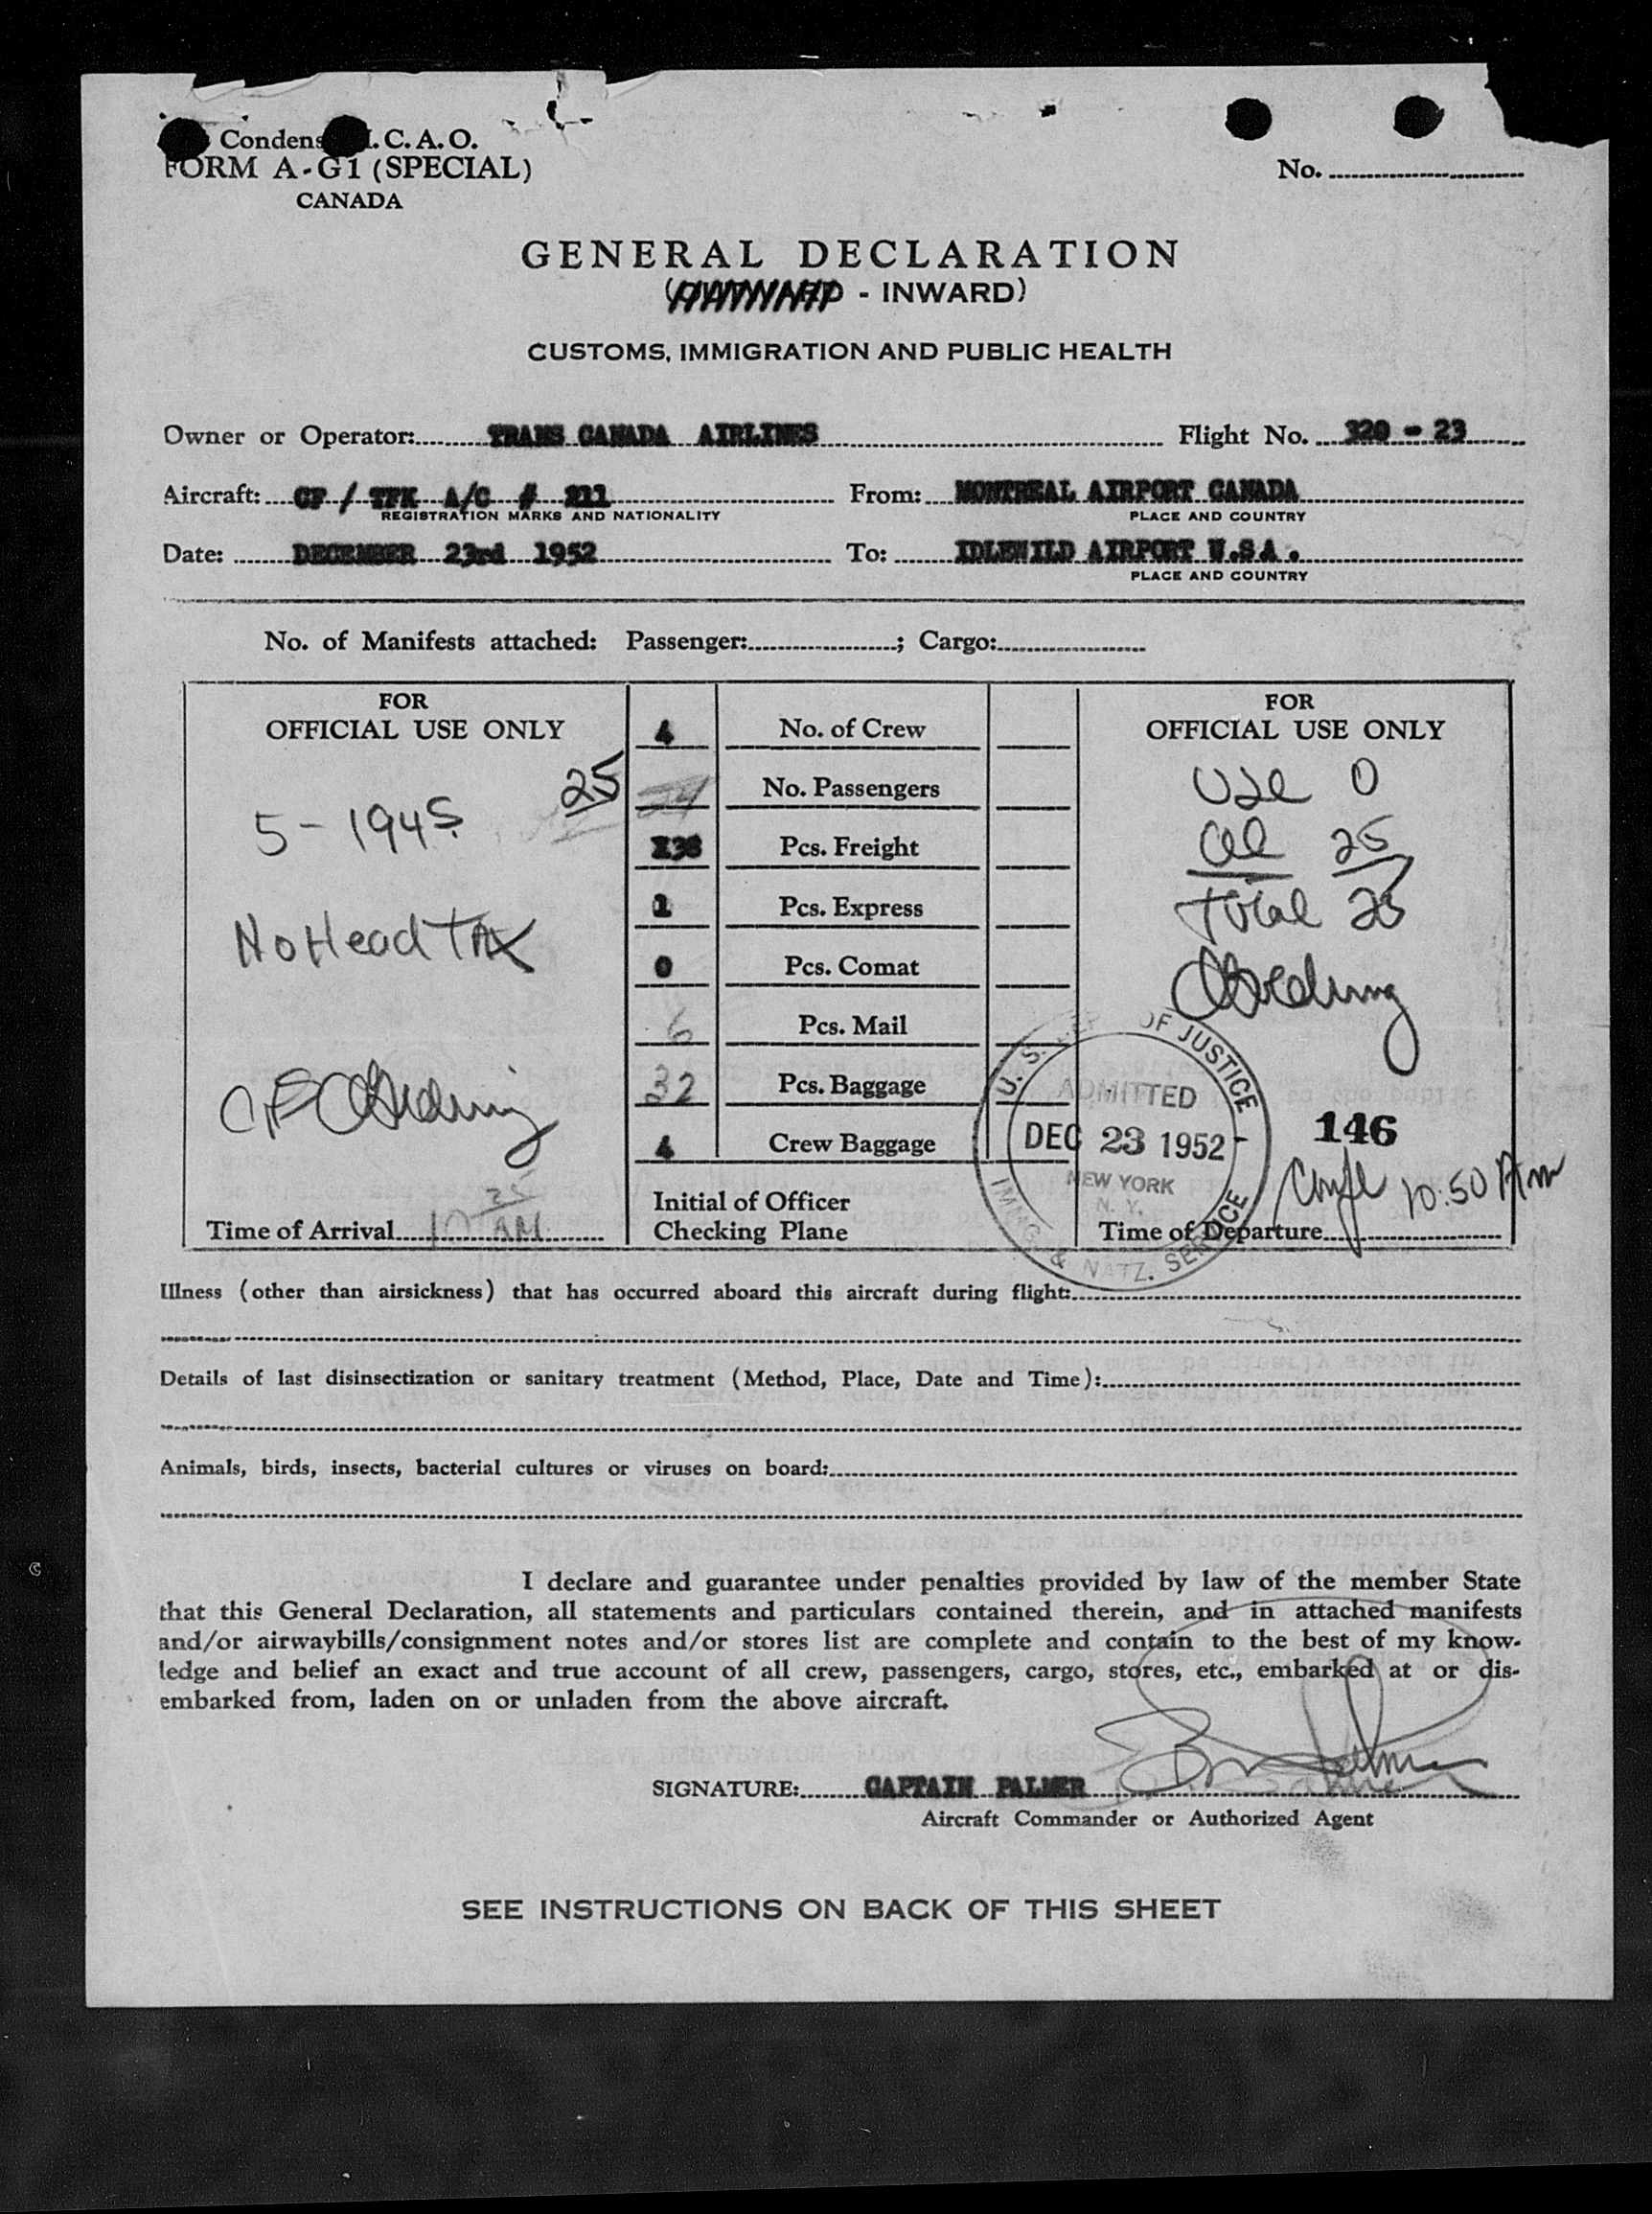 Condens I.C.A.O.
FORM A-G1 (SPECIAL)
CANADA
No.
GENERAL DECLARATION
- INWARD)
CUSTOMS, IMMIGRATION AND PUBLIC HEALTH
Owner or Operator: TRANS CANADA AIRLINES Flight No. 320 - 23
Aircraft: CF / TFK A/C # 211 From: MONTREAL AIRPORT CANADA
REGISTRATION MARKS AND NATIONALITY PLACE AND COUNTRY
Date: DECEMBER 23rd 1952 To: IDLEWILD AIRPORT U.S.A.
PLACE AND COUNTRY
No. of Manifests attached: Passenger: ; Cargo:
FOR
OFFICIAL USE ONLY
5-194S
25
No Head TAX
Time of Arrival 10 25 AM
4 No. of Crew
24 No. Passengers
Pcs. Freight
1 Pcs. Express
0 Pcs. Comat
6 Pcs. Mail
32 Pcs. Baggage
4 Crew Baggage
Initial of Officer
Checking Plane
FOR
OFFICIAL USE ONLY
USC 0
al 25
Total 25
U. S. OF JUSTICE
ADMITTED
DEC 23 1952
NEW YORK
N. Y.
IMMIG. & NATZ. SERVICE
146
10:50 Am
Time of Departure
Illness (other than airsickness) that has occurred aboard this aircraft during flight:
Details of last disinsectization or sanitary treatment (Method, Place, Date and Time):
Animals, birds, insects, bacterial cultures or viruses on board:
I declare and guarantee under penalties provided by law of the member State
that this General Declaration, all statements and particulars contained therein, and in attached manifests
and/or airwaybills/consignment notes and/or stores list are complete and contain to the best of my know-
ledge and belief an exact and true account of all crew, passengers, cargo, stores, etc., embarked at or dis-
embarked from, laden on or unladen from the above aircraft.
SIGNATURE: CAPTAIN PALMER
Aircraft Commander or Authorized Agent
SEE INSTRUCTIONS ON BACK OF THIS SHEET